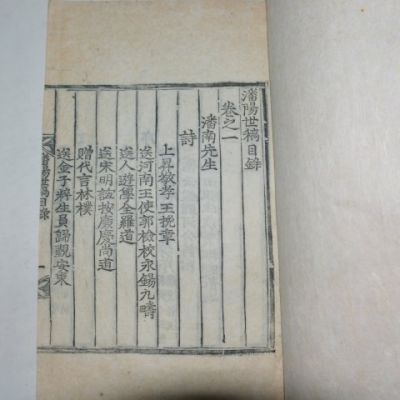 潘陽世稿目錄
卷之一
潘南先生
詩
上昇敏孝王挽章
送河南王使郭檢校永錫九疇
送人遊學全羅道
送宋明誼按廉慶尚道
贈代言林樸
送金子贇生員歸覲安東
潘陽世稿目錄
一